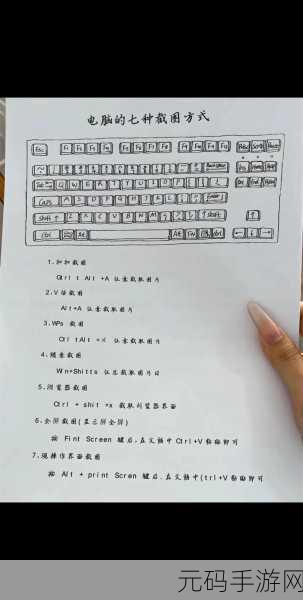 电脑的七种截图方式
Esc F1 F2 F3 F4 F5 F6 F7 F8 F9 F10 F11 F12
Q W E R T Y U I O P
Caps A S D F G H J K L Enter
shift ↑ Z X C V B N M ↑ shift ↑
ctrl Alt Alt Fn ctrl ← ↓ →
1、扣扣截图
Ctrl t Alt +A 任意截取图片
2、V信截图
Alt+A 任意截取图片
3、WPs 截图
Ctrl tAlt +X 任意截取图片
4、随意截图
Win+Shitts 任意截取图片
5、浏览器截图
Ctrl + shit +x 截取浏览器界面
6、全屏截图(显示屏全屏)
按 Fint Screen 键后,在文档中Ctrl+V粘贴即可
7、现操作界面截图
按 Alt + print Scren 键后,在文档中(trl+V粘贴即可
元码手游网